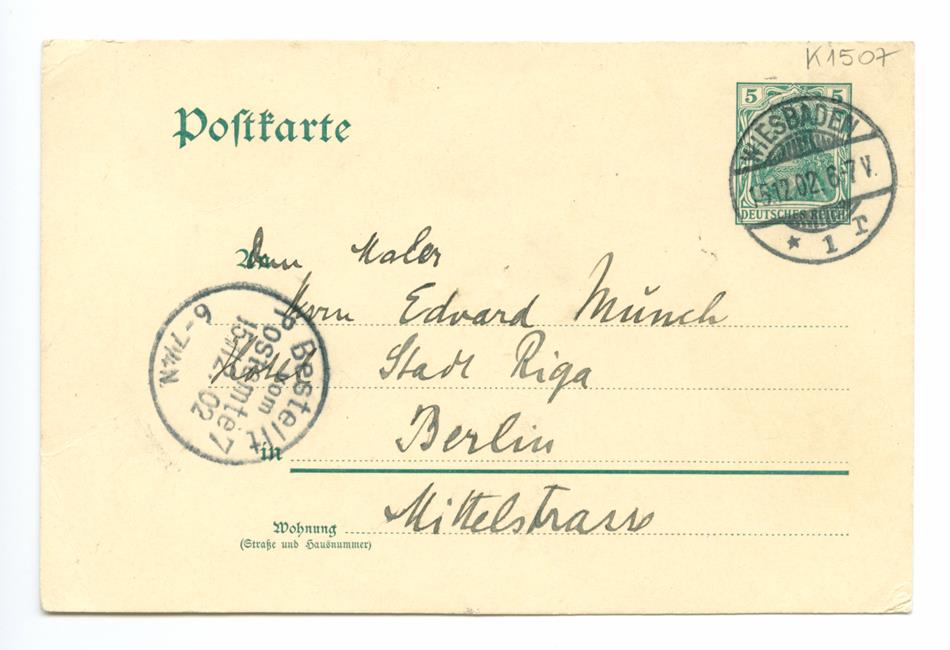 K1507
Postkarte
5 5
DEUTSCHES REICH
WIESBADEN
15.12.02. 6-7V.
* 1 r
An
Dem Maler
Herrn Edvard Münch
Hotel Stadt Riga
in Berlin
Wohnung Mittelstrasse
(Straße und Hausnummer)
Bestellt
vom
Postamte 7
15.12.02
6-7¼N